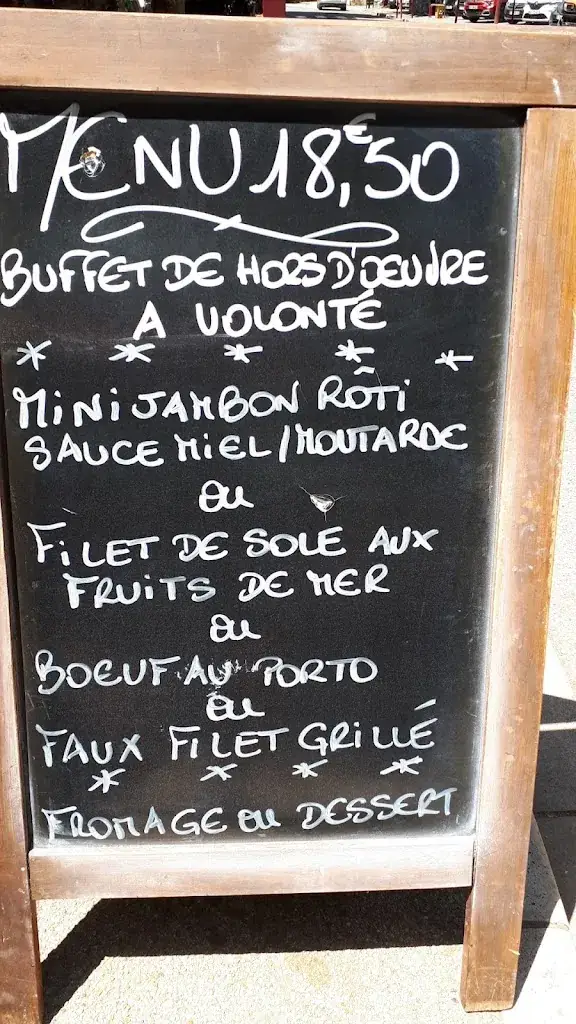 MENU 18,€50
BUFFET DE HORS D'OEUVRE
A VOLONTÉ
* * * * *
MiNi JAMBON RÔTi
SAUCE MiEL/MOUTARDE
ou
FiLET DE SOLE AUX
FRUiTS DE MER
ou
BOEUF AU PORTO
ou
FAUX FiLET GRiLLÉ
* * * *
FROMAGE ou DESSERT